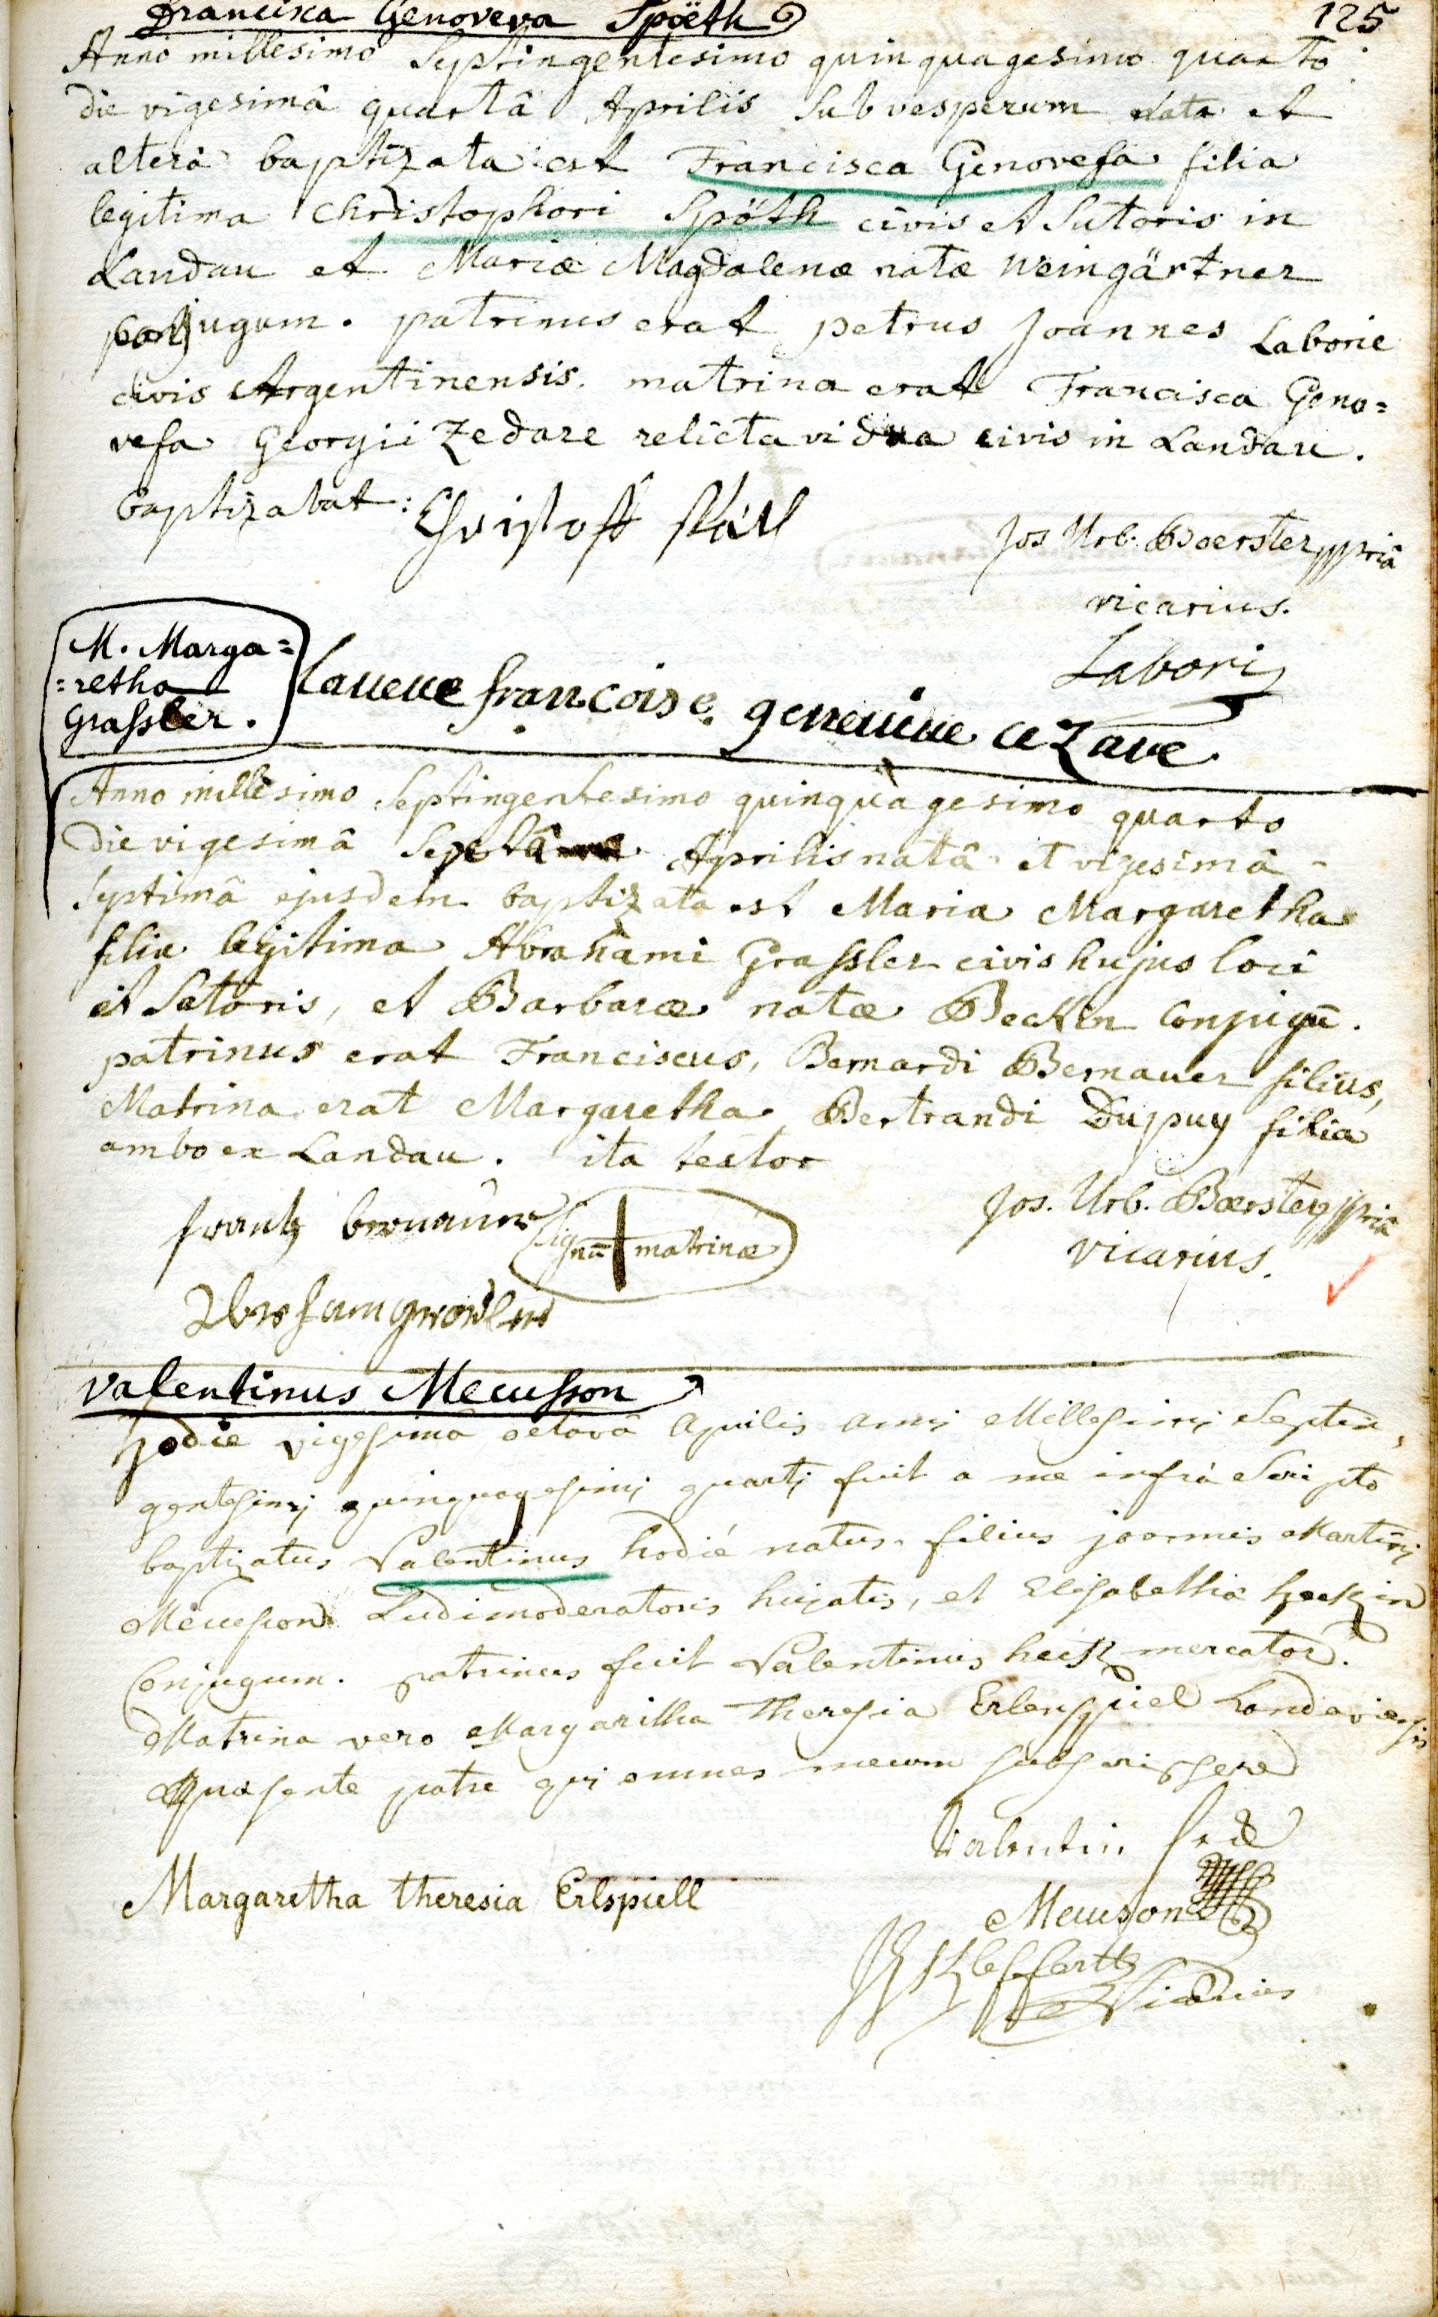 Francisca Genoveva Spöeth 125
Anno millesimo Septingentesimo quinquagesimo quarto
die vigesimâ quartâ Aprilis Sub vesperum nata et
alterâ baptizata est Francisca Genovefa filia
legitima Christophori Spöth civis et Sutoris in
Landau et Mariæ Magdalenæ natæ Weingärtner
conjugum. patrinus erat petrus Joannes Laborie
civis Argentinensis. matrina erat Francisca Geno=
vefa Georgii Zedare relicta vidua civis in Landau.
baptizabat:
Jos Urb. Boerster ppriâ
vicarius.
Labori
M. Marga=
=retha
Grassler.
laueue francoise genevieve
Anno millesimo Septingentesimo quinquagesimo quarto
die vigesimâ Aprilis natâ et vigesimâ
Septimâ ejusdem baptizata est Maria Margaretha
filia legitima Abrahami Grassler civis hujus loci
et Satoris, et Barbaræ natæ Beckin Conjugū.
patrinus erat Franciscus, Bernardi Bernauer filius,
Matrina erat Margaretha Bertrandi Dupuy filia
ambo ex Landau. ita testor
Jos. Urb. Boerster ppriâ
vicarius.
frantz bernauer
Signū + matrinæ
Abraham grasler
Valentinus Meeusson
hodie vigesima octava Aprilis anni Millesimi Septin
gentesimj quinquagesimj quartj fuit a me infrà Scripto
baptizatus Valentinus hodié natus. filius joannis Martinj
Meeusson Ludimoderatoris hujatis, et Elisabetha heckin
Conjugum. patrinus fuit Valentinus heck mercator.
Matrina vero Margaritha Theresia Erlenspiel Landaviensis
præsente patre qui omnes mecum subscripsere
Valentin
Margaretha theresia Erlspiell
Meeuson
Vicarius